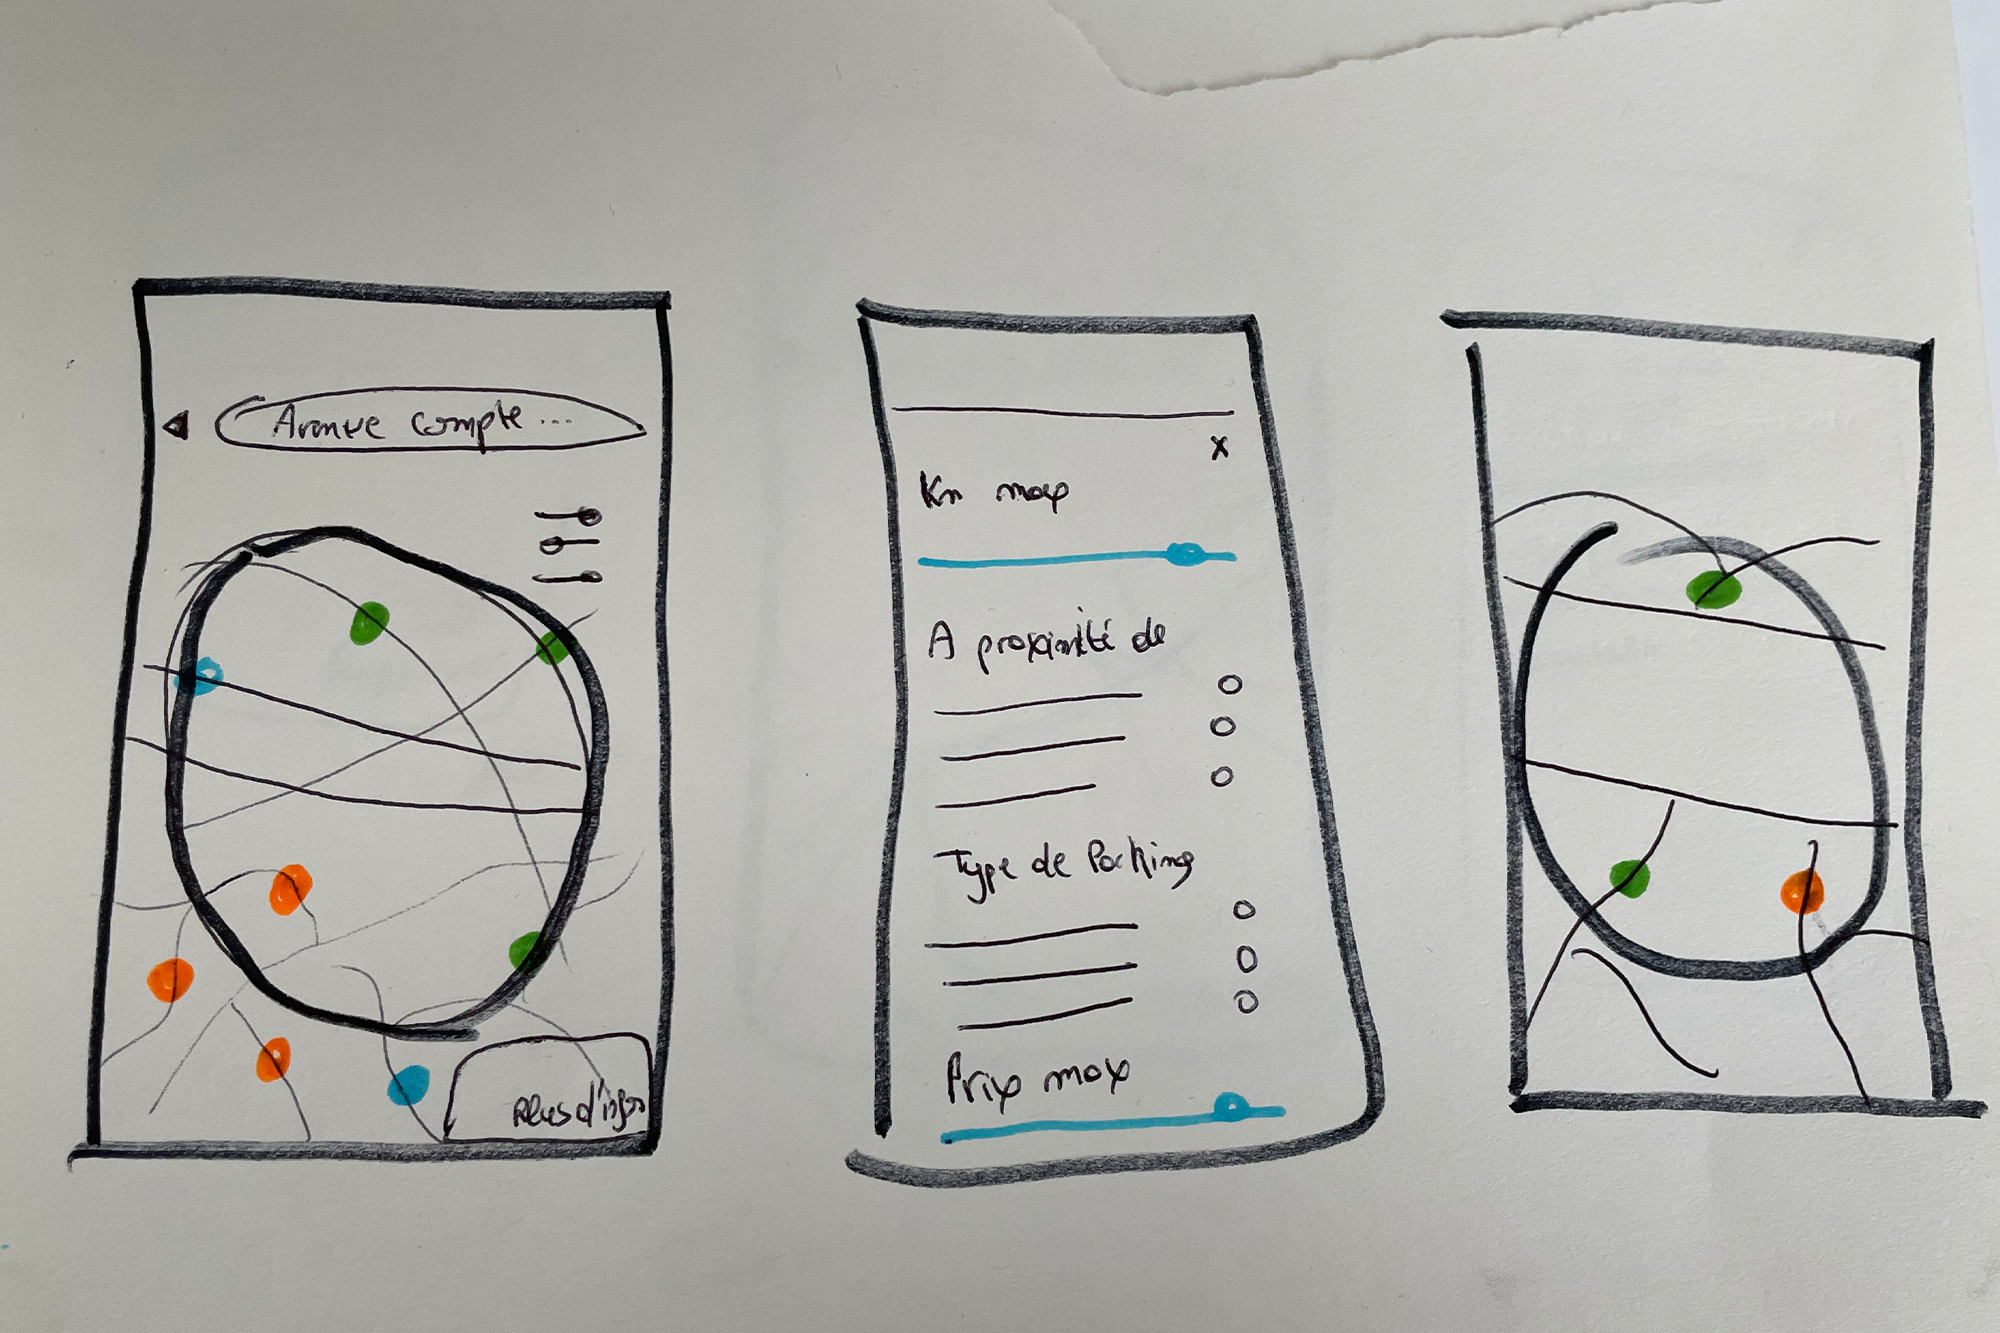 Avenue compte ...
Plus d'infos
x
Km max
A proximité de
Type de Parking
Prix max